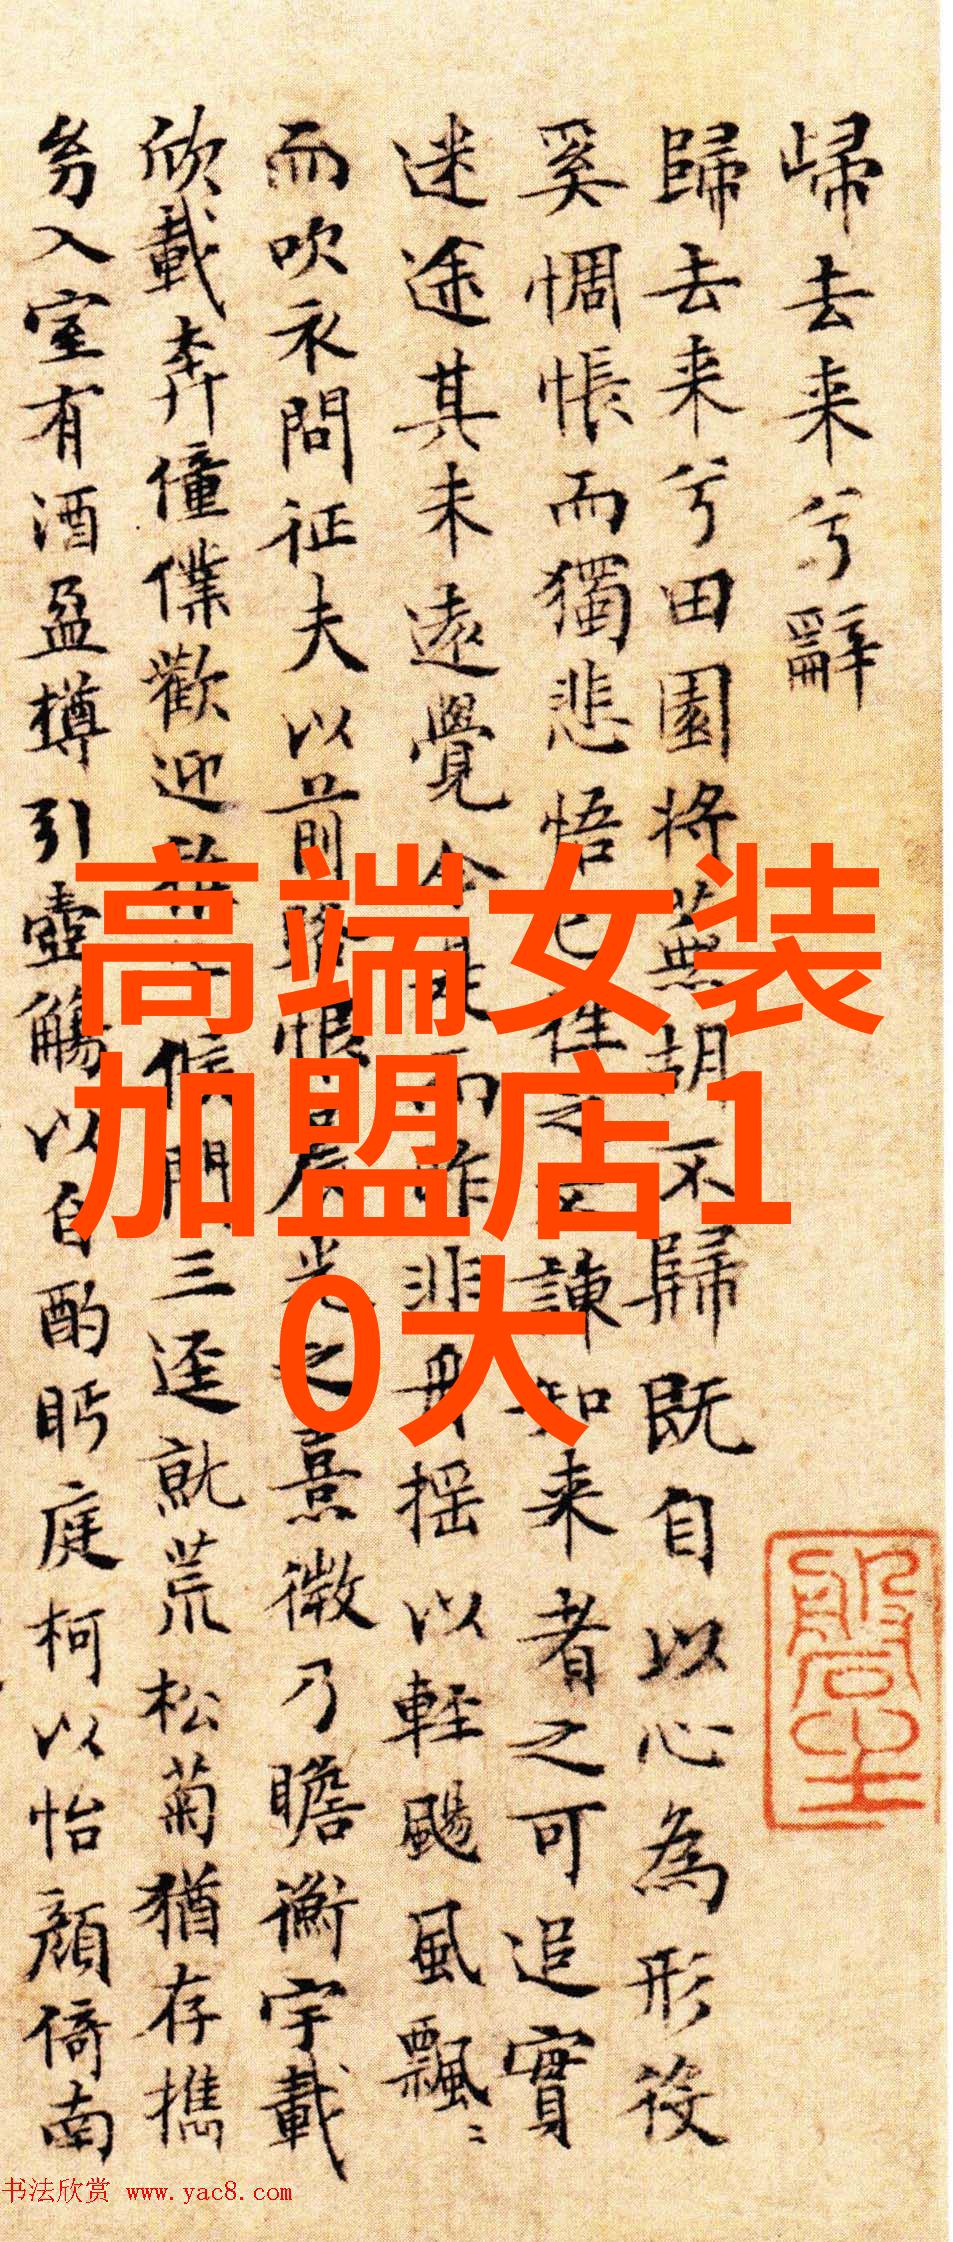 歸去来兮辭
歸去来兮田園将蕪胡不歸既自以心為形役
奚惆悵而獨悲悟已往之不諫知来者之可追實
迷途其未遠覺今是而昨非舟揺以軽颺風飄〻
而吹衣問征夫以前路恨晨光之熹微乃瞻衡宇載
欣載奔僮僕歡迎稚子候門三逕就荒松菊猶存携
幼入室有酒盈樽引壺觴以自酌眄庭柯以怡顔倚南
高端女装
加盟店1
0大
书法欣赏 www.yac8.com